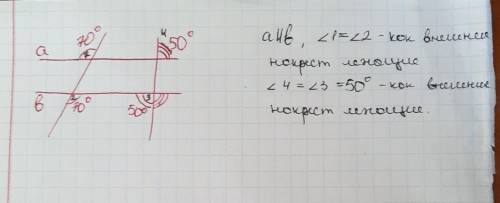 70°
4
50°
a
a∥b, ∠1=∠2 - как внешние
накрест лежащие
∠4 = ∠3 = 50° - как внешние
накрест лежащие.
в
70°
3
50°